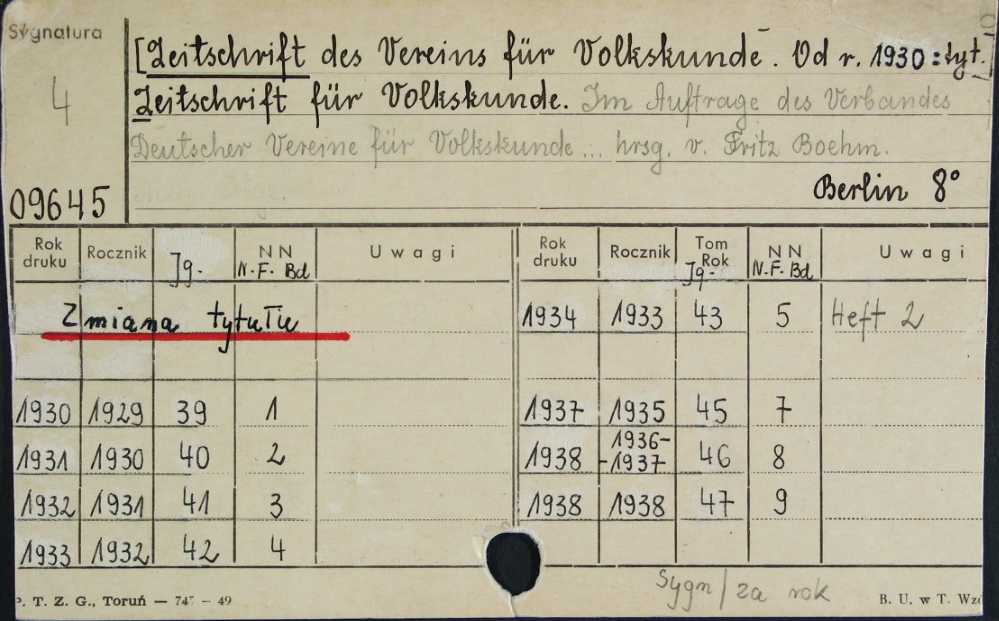 Sygnatura
4
09645
[Zeitschrift des Vereins für Volkskunde. Od r. 1930 : tyt.]
Zeitschrift für Volkskunde. Im Auftrage des Verbandes
Deutscher Vereine für Volkskunde... hrsg. v. Fritz Boehm.
Berlin 8°
Rok druku Rocznik Jg. NN N.F. Bd Uwagi
Zmiana tytułu
1930 1929 39 1
1931 1930 40 2
1932 1931 41 3
1933 1932 42 4
Rok druku Rocznik Tom Rok Jg. NN N.F. Bd Uwagi
1934 1933 43 5 Heft 2
1937 1935 45 7
1938 1936-
-1937 46 8
1938 1938 47 9
Sygn/za rok
P. T. Z. G., Toruń — 49
B. U. w T.